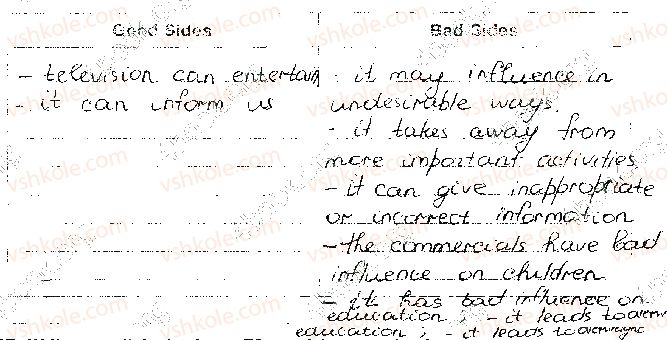 Good Sides
Bad Sides
- television can entertain
- it can inform us
- it may influence in
undesirable ways.
- it takes away from
more important activities
- it can give inappropriate
or incorrect information
- the commercials have bad
influence on children
- it has bad influence on
education ; - it leads to
education ; - it leads to